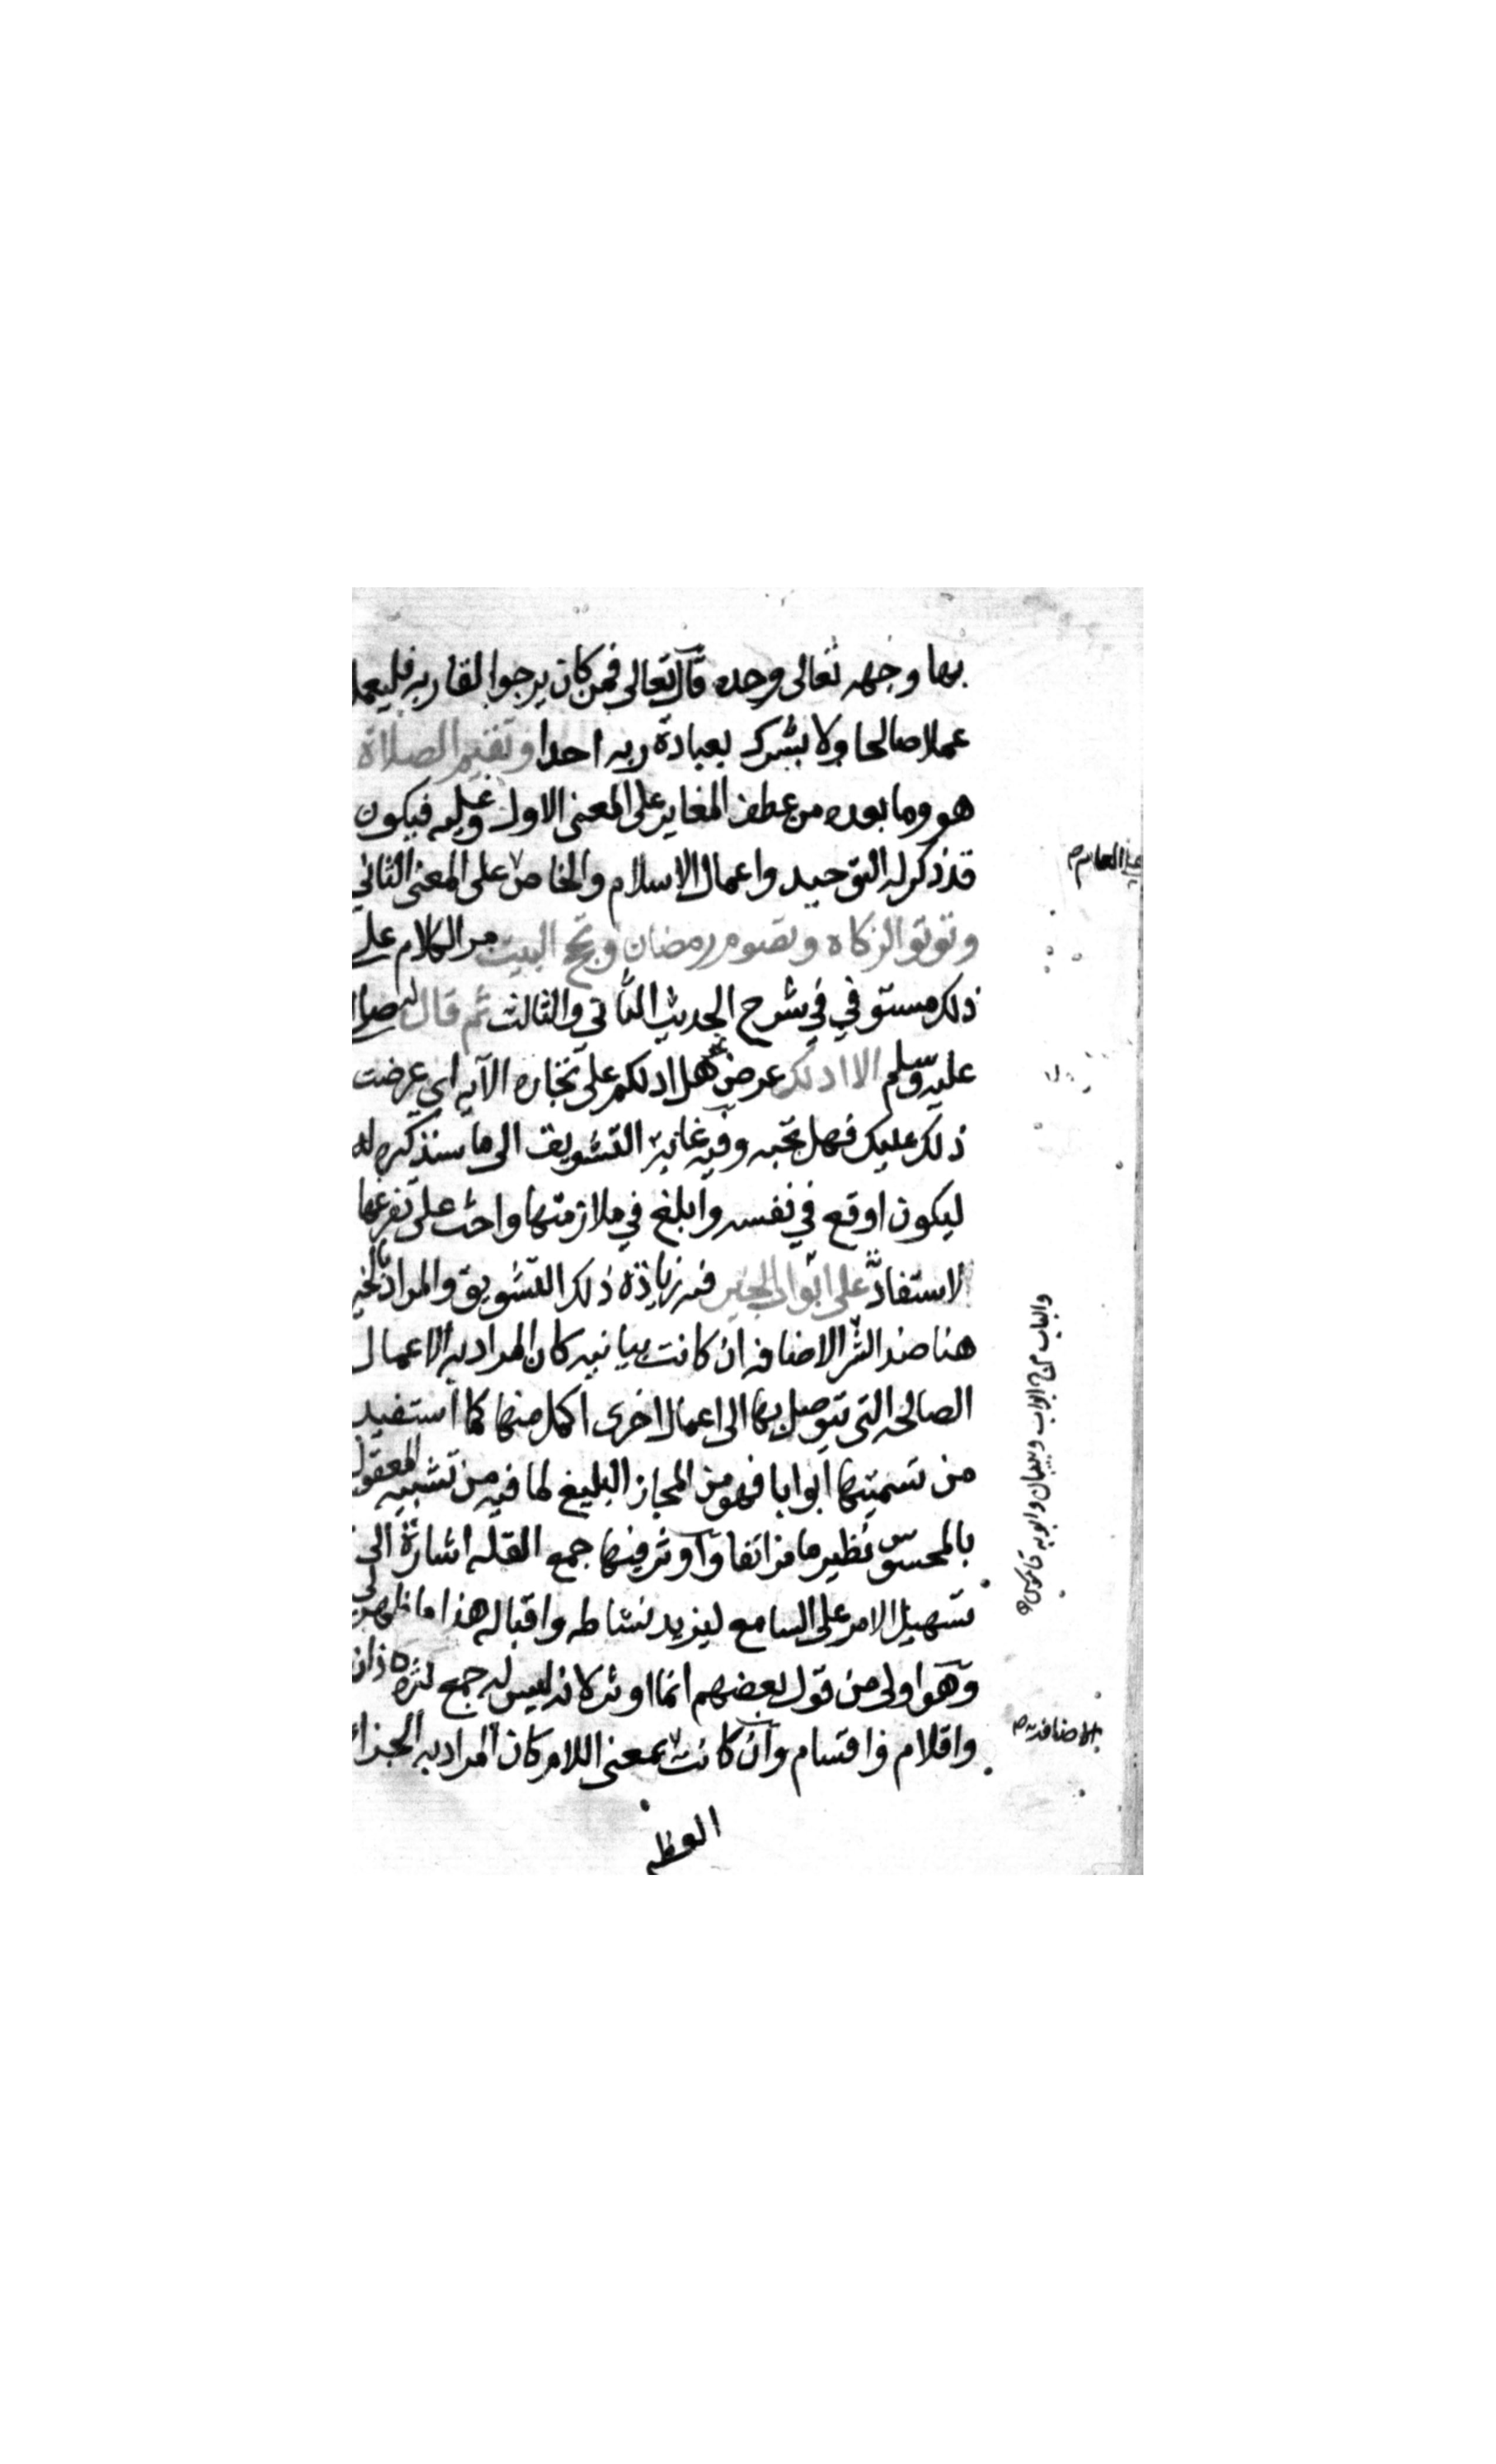 بها وجهه تعالى وحده قال تعالى فمن كان يرجوا لقا ربه فليعمل
عملا صالحا ولا يشرك بعبادة ربه احدا وتقيم الصلاة
هو وما بعده من عطف المغاير على المعنى الاول وعليه فيكون
قد ذكر له التوحيد واعمال الاسلام والخاص على المعنى الثاني
وتوتو الزكاه وتصوم رمضان وتحج البيت مر الكلام على
ذلك مستوفي في شرح الحديث الثاني والثالث ثم قال له صلى
عليه وسلم الا ادلك عرض نحو هل ادلكم على تجاره الآيه اي عرضت
ذلك عليك فهل تحبه وفيه غاية التشويق الى ما سنذكره له
ليكون اوقع في نفسه وابلغ في ملازمتها واحث على تفرغها
لاستفادة على ابواب الخير فيه زيادة ذلك التشويق والمراد بالخير
هنا ضد الشر الاضافه ان كانت بيانيه كان المراد به الاعمال
الصالحه التى يتوصل بها الى اعمال اخرى اكمل منها كما استفيد
من تسميتها ابوابا فهو من المجاز البليغ لما فيه من تشبيه المعقول
بالمحسوس نظير ما مر انفا واوثر فيها جمع القله اشارة الى
تسهيل الامر على السامع ليزيد نشاطه واقباله هذا ما ظهر لي
وهو اولى من قول بعضهم انما اوثر لانه ليس له جمع كثره ذان
واقلام واقسام وان كانت بمعنى اللام كان المراد به الجزا
العظ
والباب ج ابواب وبيبان وابوبه قاموس
الاضافة